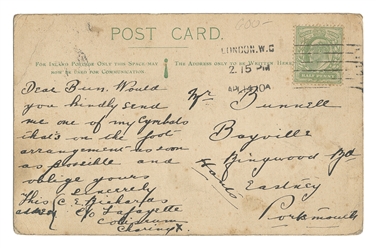 POST CARD.
FOR INLAND POSTAGE ONLY THIS SPACE MAY
NOW BE USED FOR COMMUNICATION.
THE ADDRESS ONLY TO BE WRITTEN HERE.
LONDON. W.C
2.15 PM
HALF PENNY
Dear Bun. Would
you kindly send
me one of my Cymbals
that's on the foot
arrangement as soon
as possible and
oblige yours
sincerely
This C. E. Richardas
address C/o Lafayette
Coliseum
Charing X.
Mr Bunnell
Bayville
Ringwood Rd
Eastney
Portsmouth
Hants